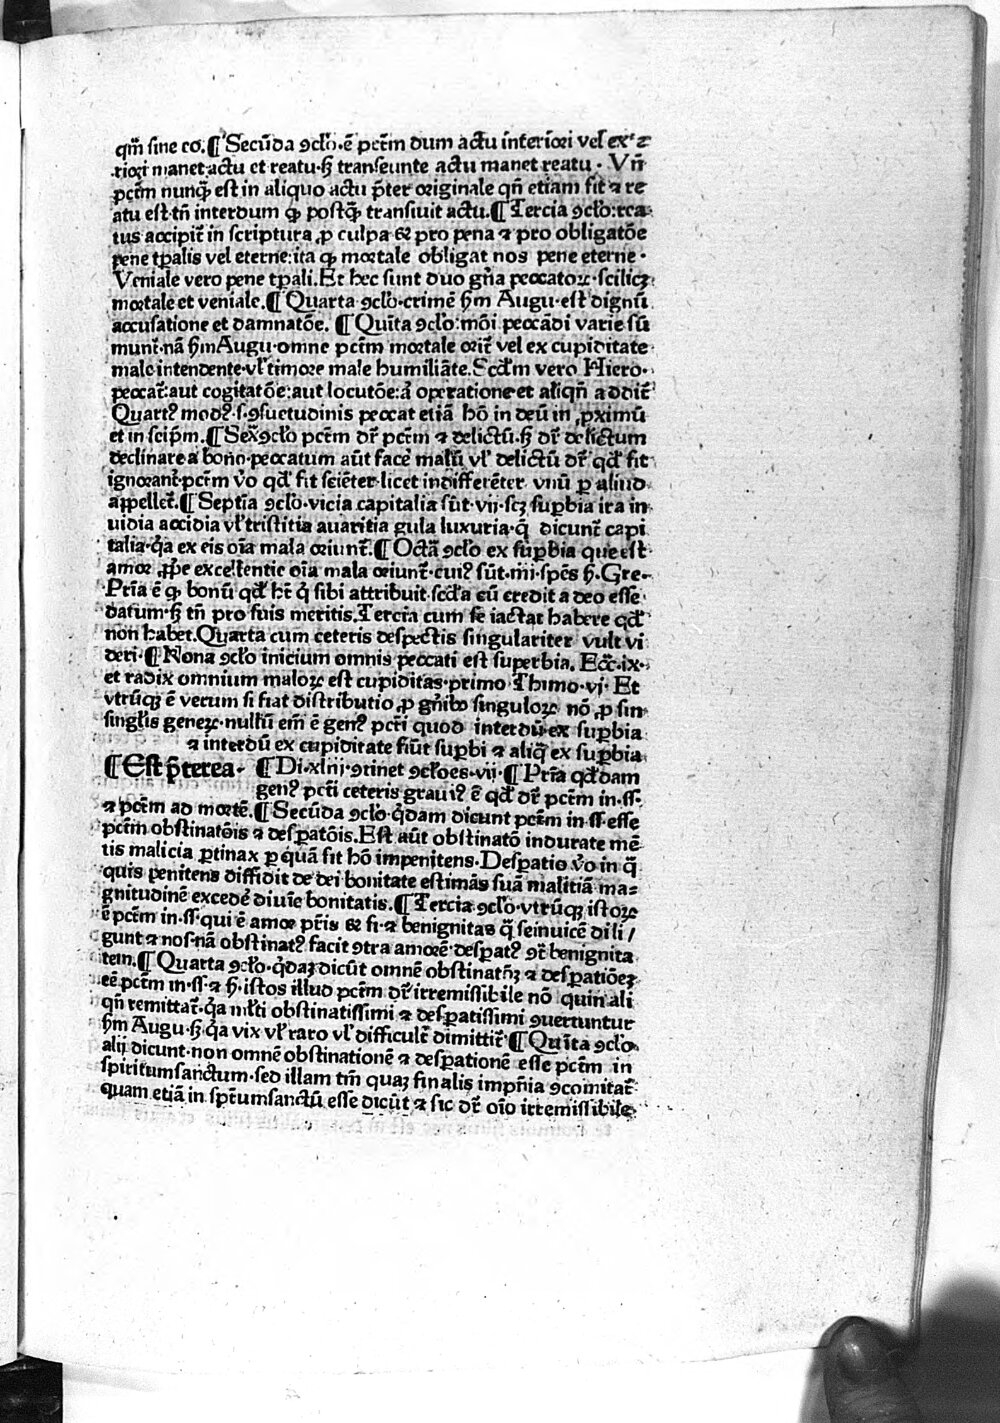 qm̄ sine eo.¶ Secūda ꝯcło.ē pctm̄ dum actu interiori vel ex
riori manet actu et reatu.ꝫ transeunte actu manet reatu. Vn̄
pctm̄ nunꝗ̄ est in aliquo actu p̄ter originale qn̄ etiam sit ⁊ re
atu est.tn̄ interdum ꝙ postꝗ̄ transiuit actu.¶ Tercia ꝯcło:rea
tus accipit̄ in scriptura ꝓ culpa & pro pena ⁊ pro obligatōe
pene tp̄alis vel eterne:ita ꝙ mortale obligat nos pene eterne.
Veniale vero pene tp̄ali.Et hec sunt duo gn̄a peccatoꝝ.sciliꝫ
mortale et veniale.¶ Quarta ꝯcło.crimē ẜm Augu.est dignū
accusatione et damnatōe. ¶ Quīta ꝯcło:mōi peccādi varie sū
munt̄.nā ẜm Augu.omne pctm̄ mortale orit̄ vel ex cupiditate
male intendente.vł timore male humiliāte.Scd̄m vero Hiero.
peccat̄:aut cogitatōe:aut locutōe:a̓ operatione et aliqn̄ addit̄
Quartꝰ modꝰ.s.ꝯsuetudinis peccat etiā hō in deū in ꝓximū
et in seip̄m.¶ Sex̄ ꝯcło pctm̄ dr̄ pctm̄ ⁊ delictū.ꝫ dr̄ delictum
declinare a bono.peccatum aūt facē malū vł delictū dr̄ qd̄ fit
ignorant̄.pctm̄ v̓o qd̄ fit sciēter.licet indifferēter vnū ꝑ aliud
appellet̄.¶ Septīa ꝯcło.vicia capitalia sūt.vij.scꝫ suꝑbia ira in
uidia accidia vł tristitia auaritia gula luxuria.q̄ dicunt̄ capi
talia.q̓a ex eis oīa mala oriunt̄.¶ Octā ꝯcło ex suꝑbia que est
amor ꝓp̄e excellentie oīa mala oriunt̄.cuiꝰ sūt.iiij.spēs ẜ.Gre.
Pr̄īa ē ꝙ bonū qd̄ hz̄ q̓s sibi attribuit.scd̄a cū credit a deo esse
datum.ꝫ tn̄ pro suis meritis.Tercia cum se iactat habere qd̄
non habet.Quarta cum ceteris despectis singulariter vult vi
deri.¶ Nona ꝯcło inicium omnis peccati est superbia. Ecc̄.ix.
et radix omnium maloꝝ est cupiditas.primo Thimo.vj. Et
vtrūqꝫ ē verum si fiat distributio ꝓ gn̄ibꝰ singuloꝝ nō ꝓ sin
singlis geneꝝ.nullū em̄ ē genꝰ pcti quod interdū ex suꝑbia
⁊ interdū ex cupiditate fiūt suꝑbi ⁊ aliq̄ ex suꝑbia
¶ Est p̄terea. ¶ Di.xliij.ꝯtinet ꝯcłoes.vij.¶ Pr̄īa qd̄dam
genꝰ pcti ceteris grauiꝰ ē qd̄ dr̄ pctm̄ in.ss.
⁊ pctm̄ ad mortē.¶ Secūda ꝯcło.q̓dam dicunt pctm̄ in.ss.esse
pctm̄ obstinatōis ⁊ desꝑatōis.Est aūt obstinatō indurate mē
tis malicia ꝑtinax ꝑ quā fit hō impenitens.Desꝑatio v̓o in q̄
quis penitens diffidit de dei bonitate estimās suā malitiā ma⸗
gnitudinē excedē diuīe bonitatis.¶ Tercia ꝯcło.vtrūqꝫ istoꝝ
ē pctm̄ in.ss.qui ē amor pr̄is & fi.⁊ benignitas q̄ seinuicē dili/
gunt ⁊ nos.nā obstinatꝰ facit ꝯtra amorē.desꝑatꝰ ꝯt̄ benignita
tem.¶ Quarta ꝯcło.q̓daꝫ dicūt omnē obstinatn̄ꝫ ⁊ desꝑatiōeꝫ
eē pctm̄ in.ss.⁊ ẜ.istos illud pctm̄ dr̄ irremissibile nō quin ali
qn̄ remittat̄.q̓a mlti obstinatissimi ⁊ desꝑatissimi ꝯuertuntur
ẜm Augu.ꝫ q̓a vix vł raro vł difficult̄ dimittit̄.¶ Quīta ꝯcło.
alij dicunt.non omnē obstinationē ⁊ desꝑationē esse pctm̄ in
spiritumsanctum.sed illam tm̄ quaꝫ finalis impn̄ia ꝯcomitat̄
quam etiā in sp̄tumsanctū esse dicūt ⁊ sic dr̄ oīo irremissibile